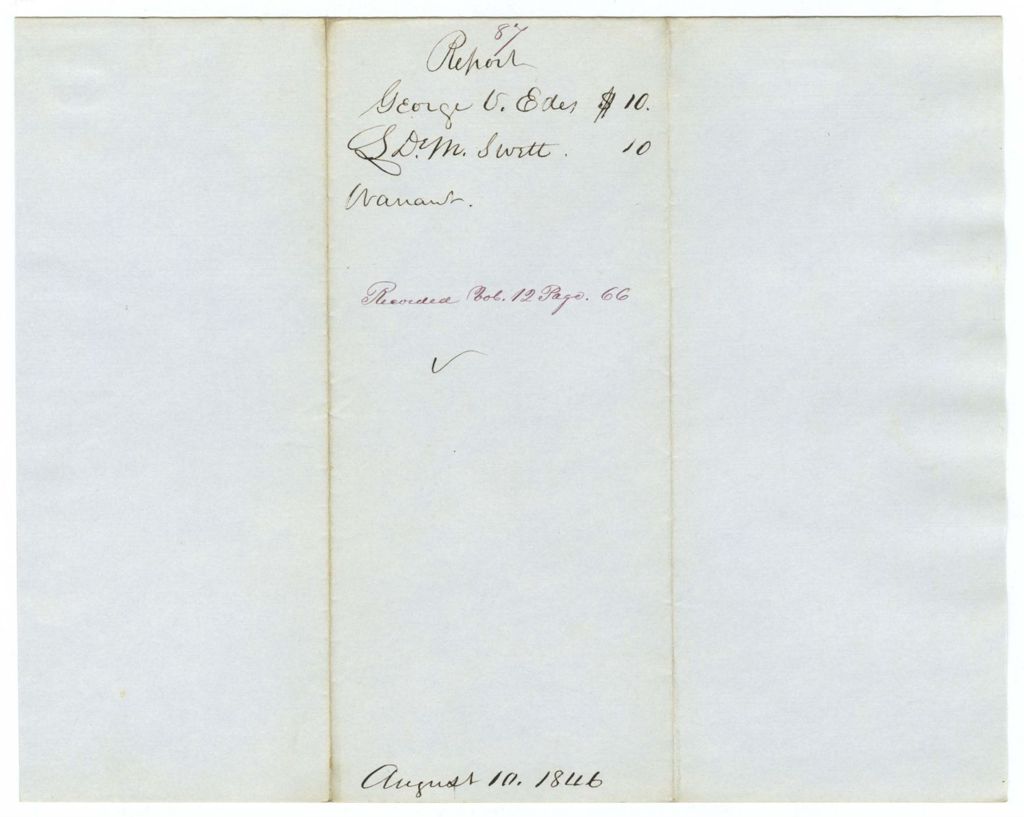 87
Report
George V. Edes $ 10.
S. D. M. Swett. 10
Warrant.
Recorded Vol. 12 Page. 66
✓
August 10. 1846